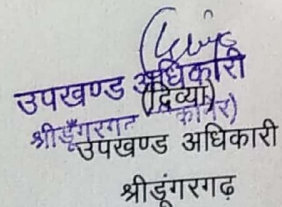 उपखण्ड अधिकारी
(दिव्या)
श्रीडूँगरगढ़
उपखण्ड अधिकारी
श्रीडूंगरगढ़